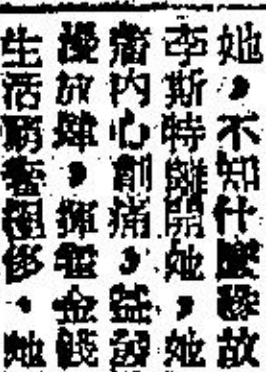 她，不知什麼緣故
李斯特離開她，她
內心創痛，益
放肆，揮霍金錢
生活窮奢極侈．她